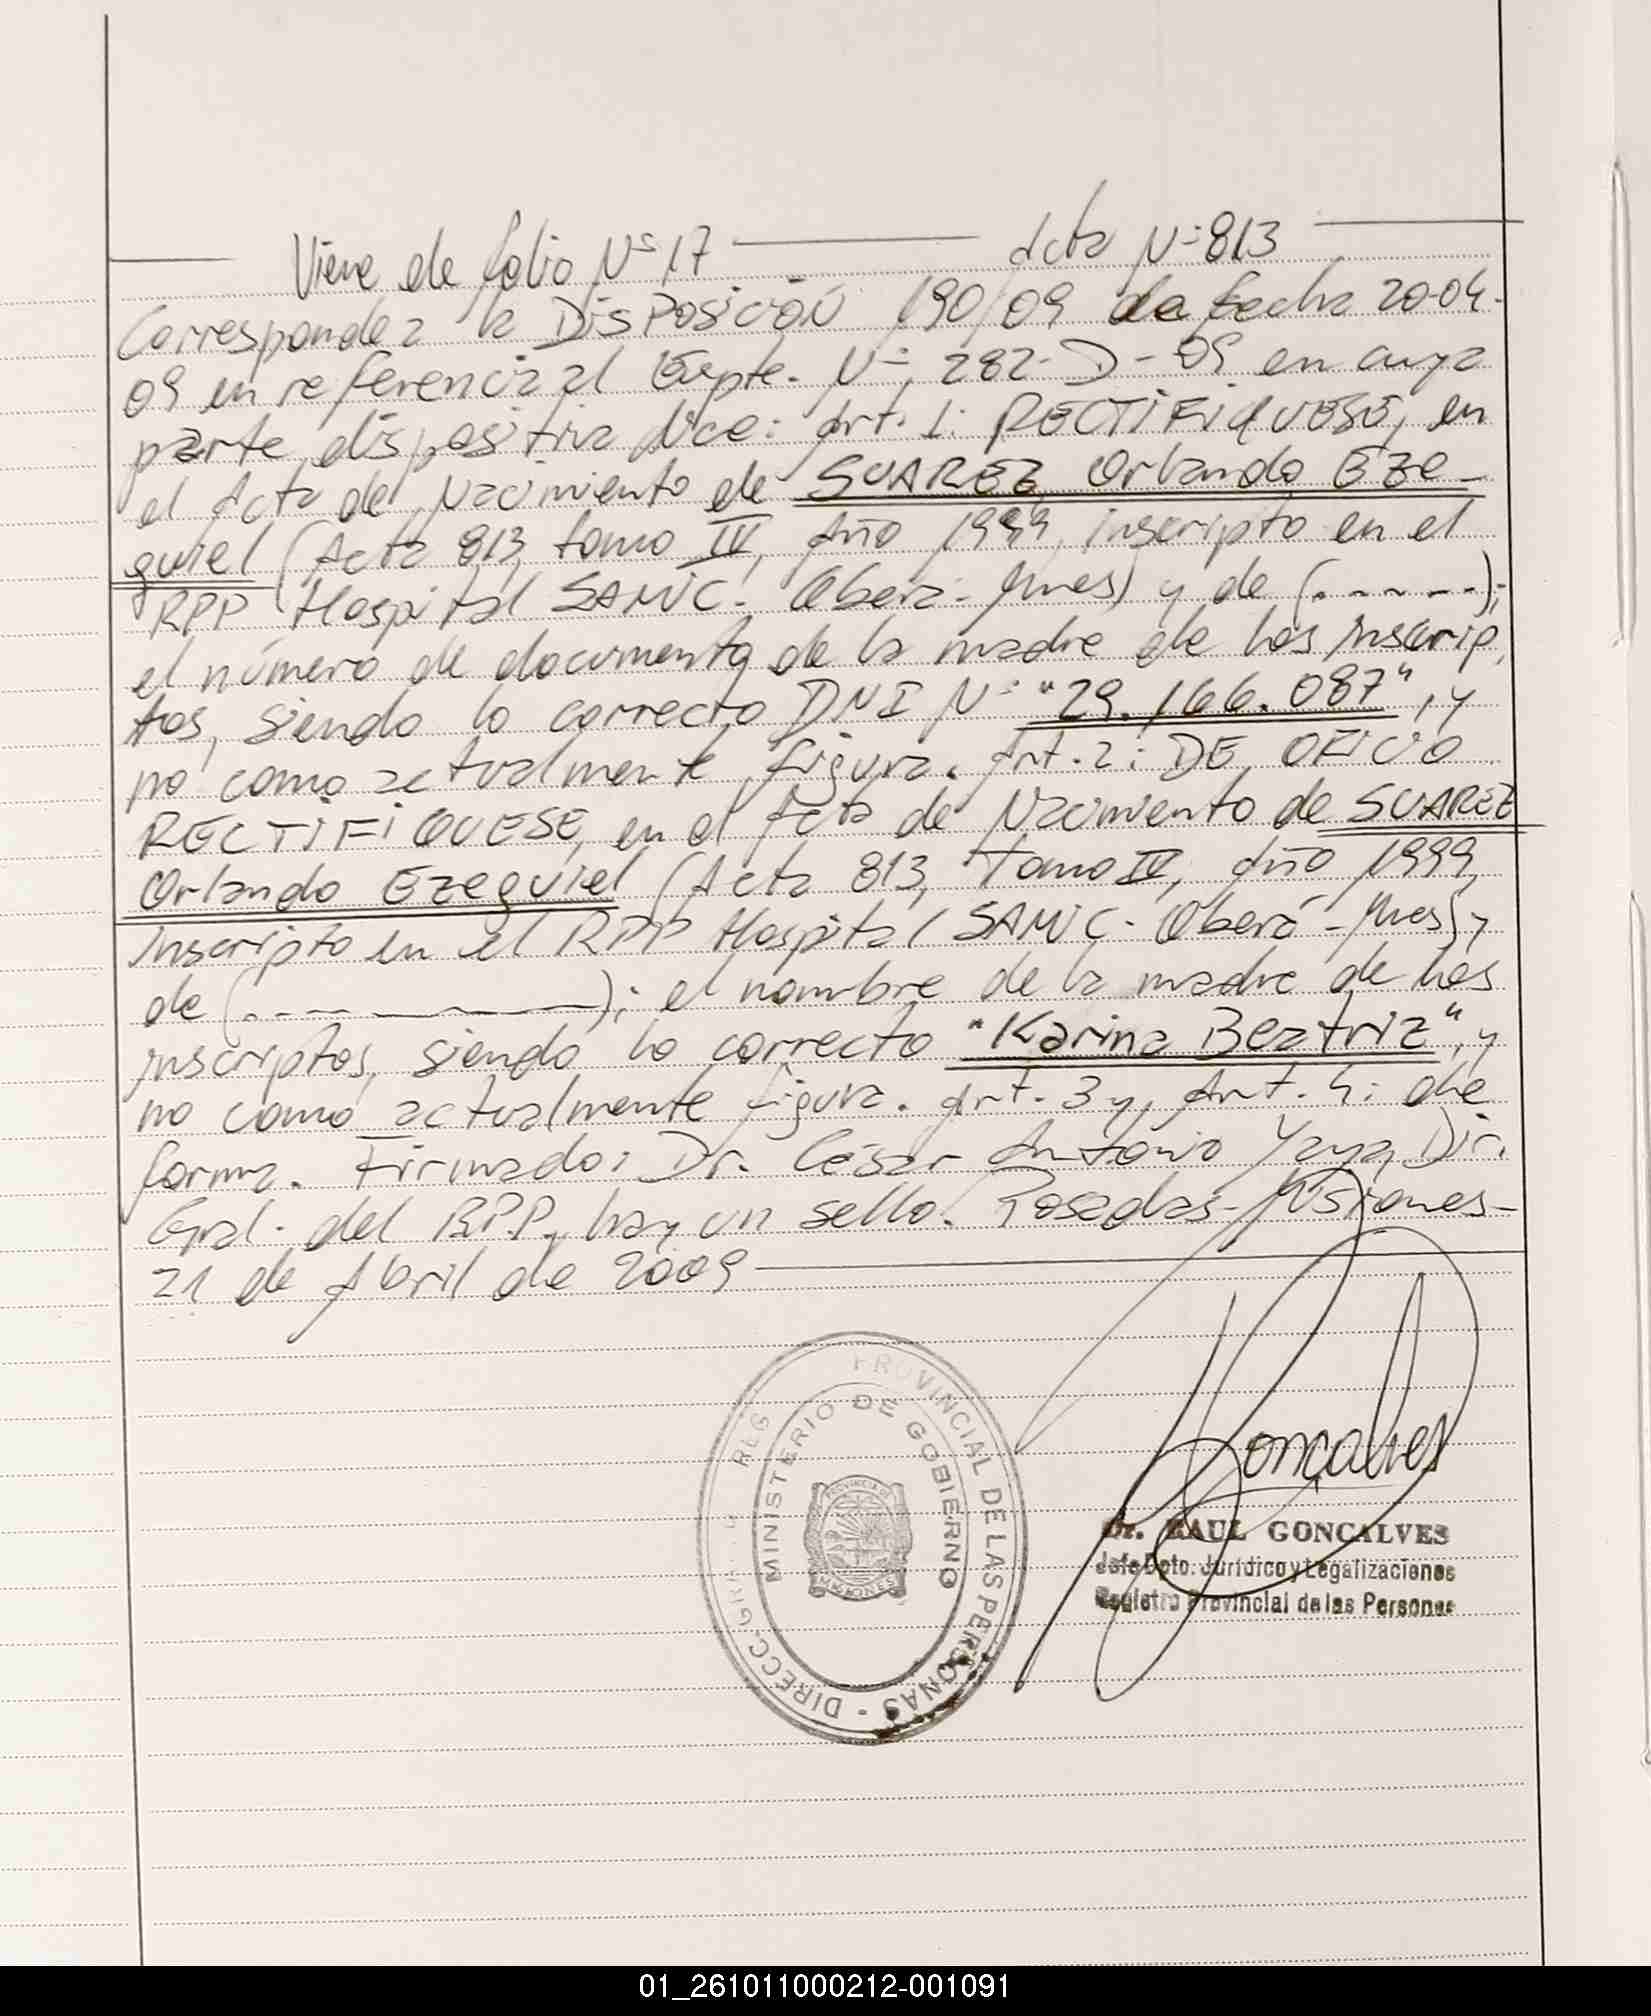 Viene de folio Nº 17 ——— Acta Nº 813 ———
Corresponde a la DisPosición 190/09 de fecha 20-04-
09 en referencia al Expte. Nº 282-D-09 en cuya
parte dispositiva dice: Art. 1: RECTIFIQUESE, en
el Acta de Nacimiento de SUAREZ Orlando Eze-
quiel (Acta 813, tomo IV, Año 1999, inscripto en el
RPP Hospital SAMIC - Oberá - Mnes) y de (. - - - - -);
el número de documento de la madre de los inscrip
tos, siendo lo correcto DNI Nº "29.166.087", y
no como actualmente figura. Art. 2: DE OFICIO
RECTIFIQUESE, en el Acta de Nacimiento de SUAREZ
Orlando Ezequiel (Acta 813, Tomo IV, Año 1999,
inscripto en el RPP Hospital SAMIC - Oberá - Mnes) y
de (. - - - - - - -); el nombre de la madre de los
inscriptos, siendo lo correcto "Karina Beatriz", y
no como actualmente figura. Art. 3 y, Art. 4: de
forma. Firmado: Dr. César Antonio Yaya, Dir.
Gral. del RPP, hay un sello. Posadas - Misiones -
21 de Abril de 2009 ———
DIRECC. GRAL. REG PROVINCIAL DE LAS PERSONAS -
MINISTERIO DE GOBIERNO
PROVINCIA
MISIONES
Goncalves
Dr. RAUL GONCALVES
Jefe Dpto. Jurídico y Legalizaciones
Registro Provincial de las Personas
01_261011000212-001091